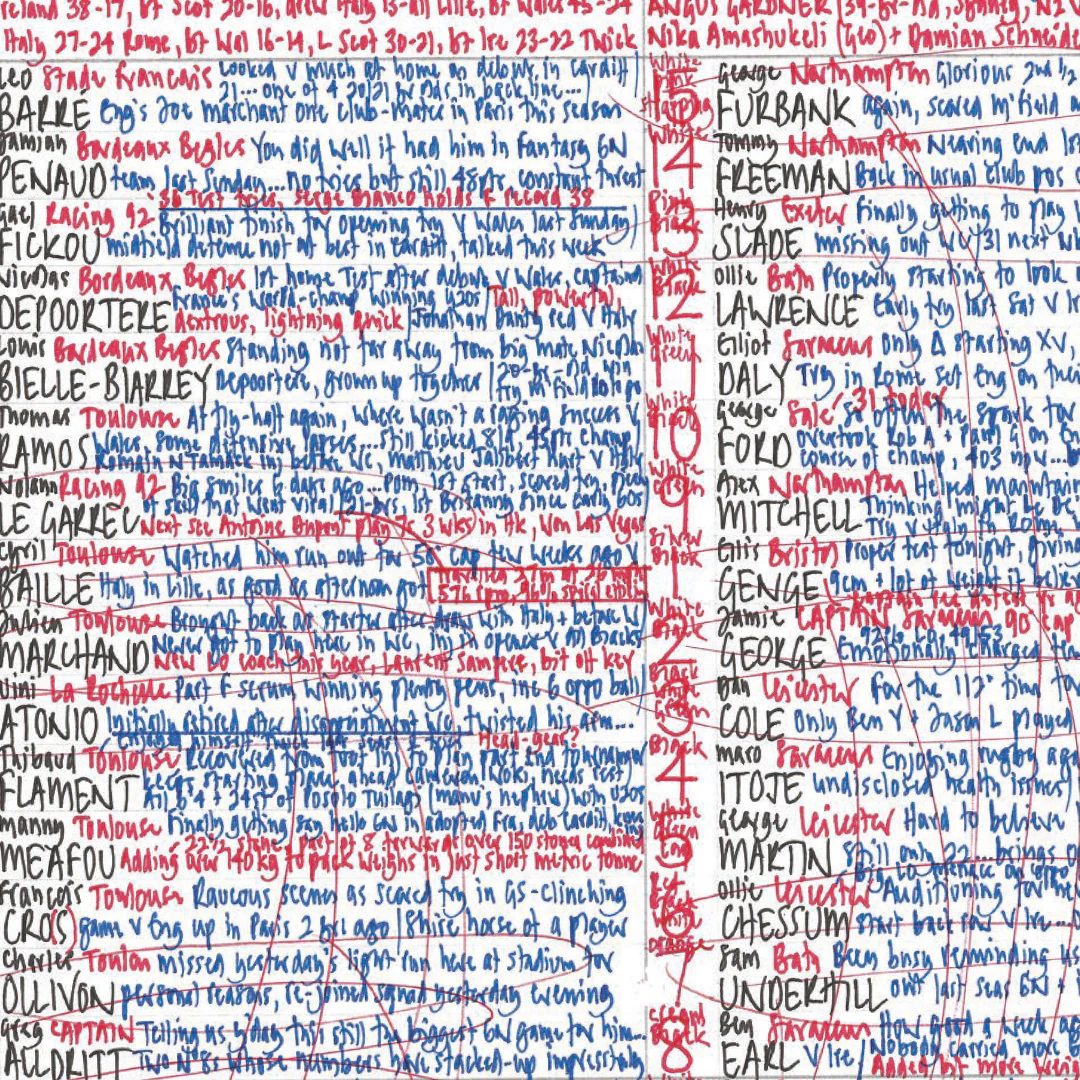 reland 38-17, bt Scot 20-16, drew Italy 13-all Lille, bt Wales 45-24
Italy 27-24 Rome, bt Wal 16-14, L Scot 30-21, bt Ire 23-22 Twick
ANGUS GARDNER (39-yr-old, Sydney, N2 V
Nika Amashukeli (Geo) + Damian Schneide
Leo Stade Francais Looked v much at home on debut, in Cardiff
21... one of 4 20/21 yr olds in back line...
BARRE Eng's Joe Marchant one club-mate in Paris this season
Damian Bordeaux Begles You did well if had him in Fantasy 6N
PENAUD team last Sunday... no tries but still 48pts, constant threat
36 Test tries, Serge Blanco holds F record 38
Gael Racing 92 Brilliant finish for opening try v Wales last Sunday
FICKOU midfield defence not at best in Cardiff, talked this week
Nicolas Bordeaux Begles 1st home Test after debut v Wales, captained
France's World-champ winning U20s Tall, powerful,
DEPOORTERE dextrous, lightning quick Jonathan Danty red v Italy
Louis Bordeaux Begles Standing not far away from big mate Nicolas
BIELLE-BIARREY Depoortere, grown up together 20-yr-old
Thomas Toulouse At fly-half again, where wasn't a raging success v
RAMOS Wales, some defensive lapses... still kicked 45pts champ
Romain Ntamack inj before WC, Matthieu Jalibert hurt v Italy
Nolann Racing 92 Big smiles 6 days ago... 1st start, scored try, piece
of skill that went viral 1st Brittany since early 60s
LE GARREC Next see Antoine Dupont play 7s 3 wks in HK, won Las Vegas
Cyril Toulouse Watched him run out for 50th cap few weeks ago v
BAILLE Italy in Lille, as good as afternoon got
Travelled 27m at 26 mph
576 rpm, 96% spiral
Julien Toulouse Brought back as starter after draw with Italy + before W
MARCHAND Never got to play here in WC, inj opener v All Blacks
New LO coach this year, Laurent Sempere, bit off key
Uini La Rochelle Part F scrum winning plenty pens, inc 6 oppo ball
ATONIO Initially retired after disappointment WC, twisted his arm...
Enjoyed himself Twick last year
Head-gear?
Thibaud Toulouse Recovered from foot inj to play part end tournament
FLAMENT keeps starting place ahead Cameron Woki, needs rest
All 6'4 + 24st of Posolo Tuilagi (Manu's nephew) with U20s
Manny Toulouse Finally getting say hello Gas in adopted Fra, deb Cardiff
22½ stone, part of 8 forwards over 150 stones combined
MEAFOU Adding over 140kg to pack weighs in just short metric tonne
Francois Toulouse Raucous scenes as scored try in GS-clinching
CROS game v Eng up in Paris 2 yrs ago Shire horse of a player
Charles Toulon missed yesterday's light run here at stadium for
OLLIVON personal reasons, re-joined squad yesterday evening
Greg CAPTAIN Telling us y'day this still for biggest 6N game for him...
ALLDRITT Two N°8s whose numbers have stacked-up impressively
White
15
strapping
White
14
Pink
Black
13
White
Black
12
White
Green
11
White
Black
10
White
Green
9
Silver
Black
1
White
Black
2
Black
White
Green
3
Black
4
White
Green
5
6
White
Orange
7
Cream
Black
8
George Northampton Glorious 2nd ½
FURBANK again, scored m'field a
Tommy Northampton Nearing end 1st
FREEMAN Back in usual club pos
Henry Exeter Finally getting to play
SLADE missing out WC, 31 next
Ollie Bath Properly starting to look
LAWRENCE Early try last Sat v Ir
Elliot Saracens Only Δ starting XV,
DALY Try in Rome set Eng on their
George Sale 31 today So often the spark for
FORD overtook Rob A + Paul G on
course of champ, 403 now...
Alex Northampton Helped maintain
MITCHELL Thinking might be
Try v Italy in Rome
Ellis Bristol Proper test tonight, giving
GENGE 9cm + lot of weight if believe
Jamie CAPTAIN Saracens 90th cap
GEORGE Emotionally charged
Dan Leicester For the 112th time to
COLE Only Ben Y + Jason L played
Maro Saracens Enjoying rugby aga
ITOJE undisclosed health issues
George Leicester Hard to believe
MARTIN Still only 22... brings
Big Lo menace on oppo
Ollie Leicester Auditioning for
CHESSUM start back row v Ire...
Sam Bath Been busy reminding us
UNDERHILL out last seas 6N +
Ben Saracens How good a week ago
EARL v Ire Nobody carried more
Added bit more weig